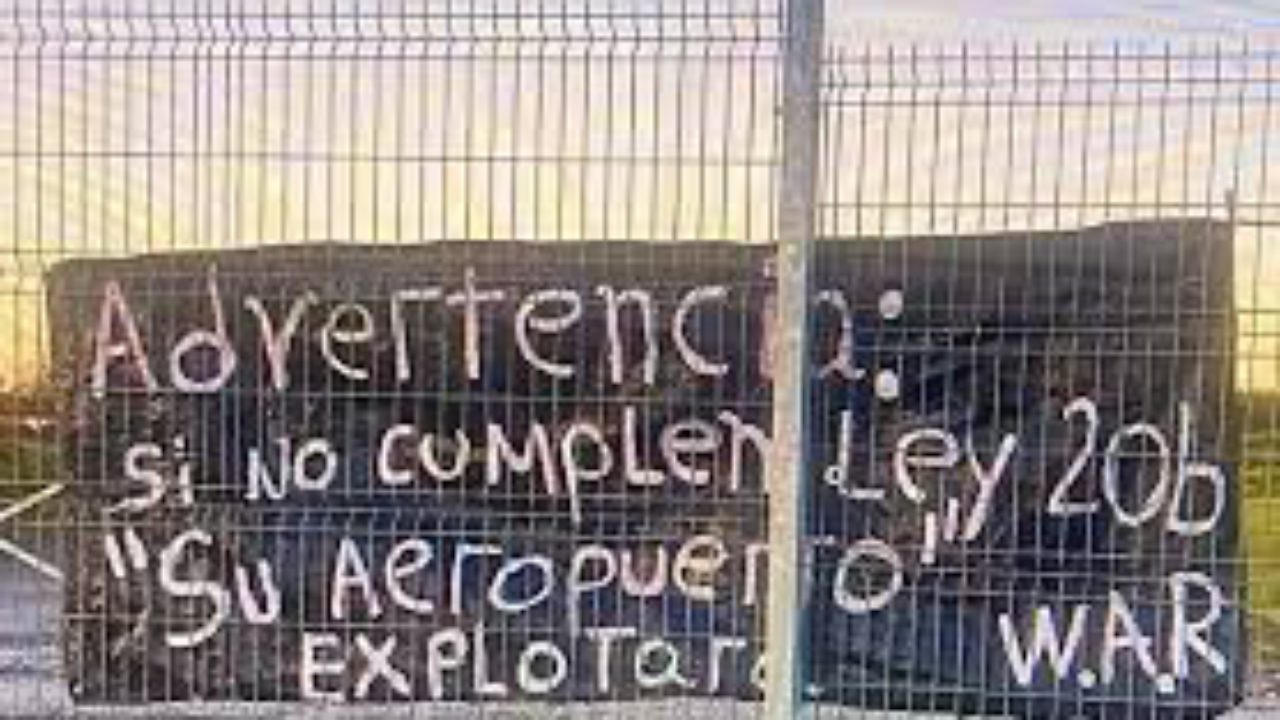 Advertencia:
Si NO CUMpLen Ley 20b
"Su Aeropuerto"
EXPLOTara
W.A.R